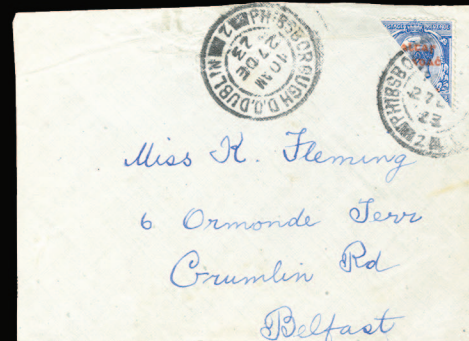 PHIBSBOROUGH D.O. DUBLIN 2
10 AM
27 DE
23
PHIBSBO
27 D
23
Miss K. Fleming
6 Ormonde Terr
Crumlin Rd
Belfast